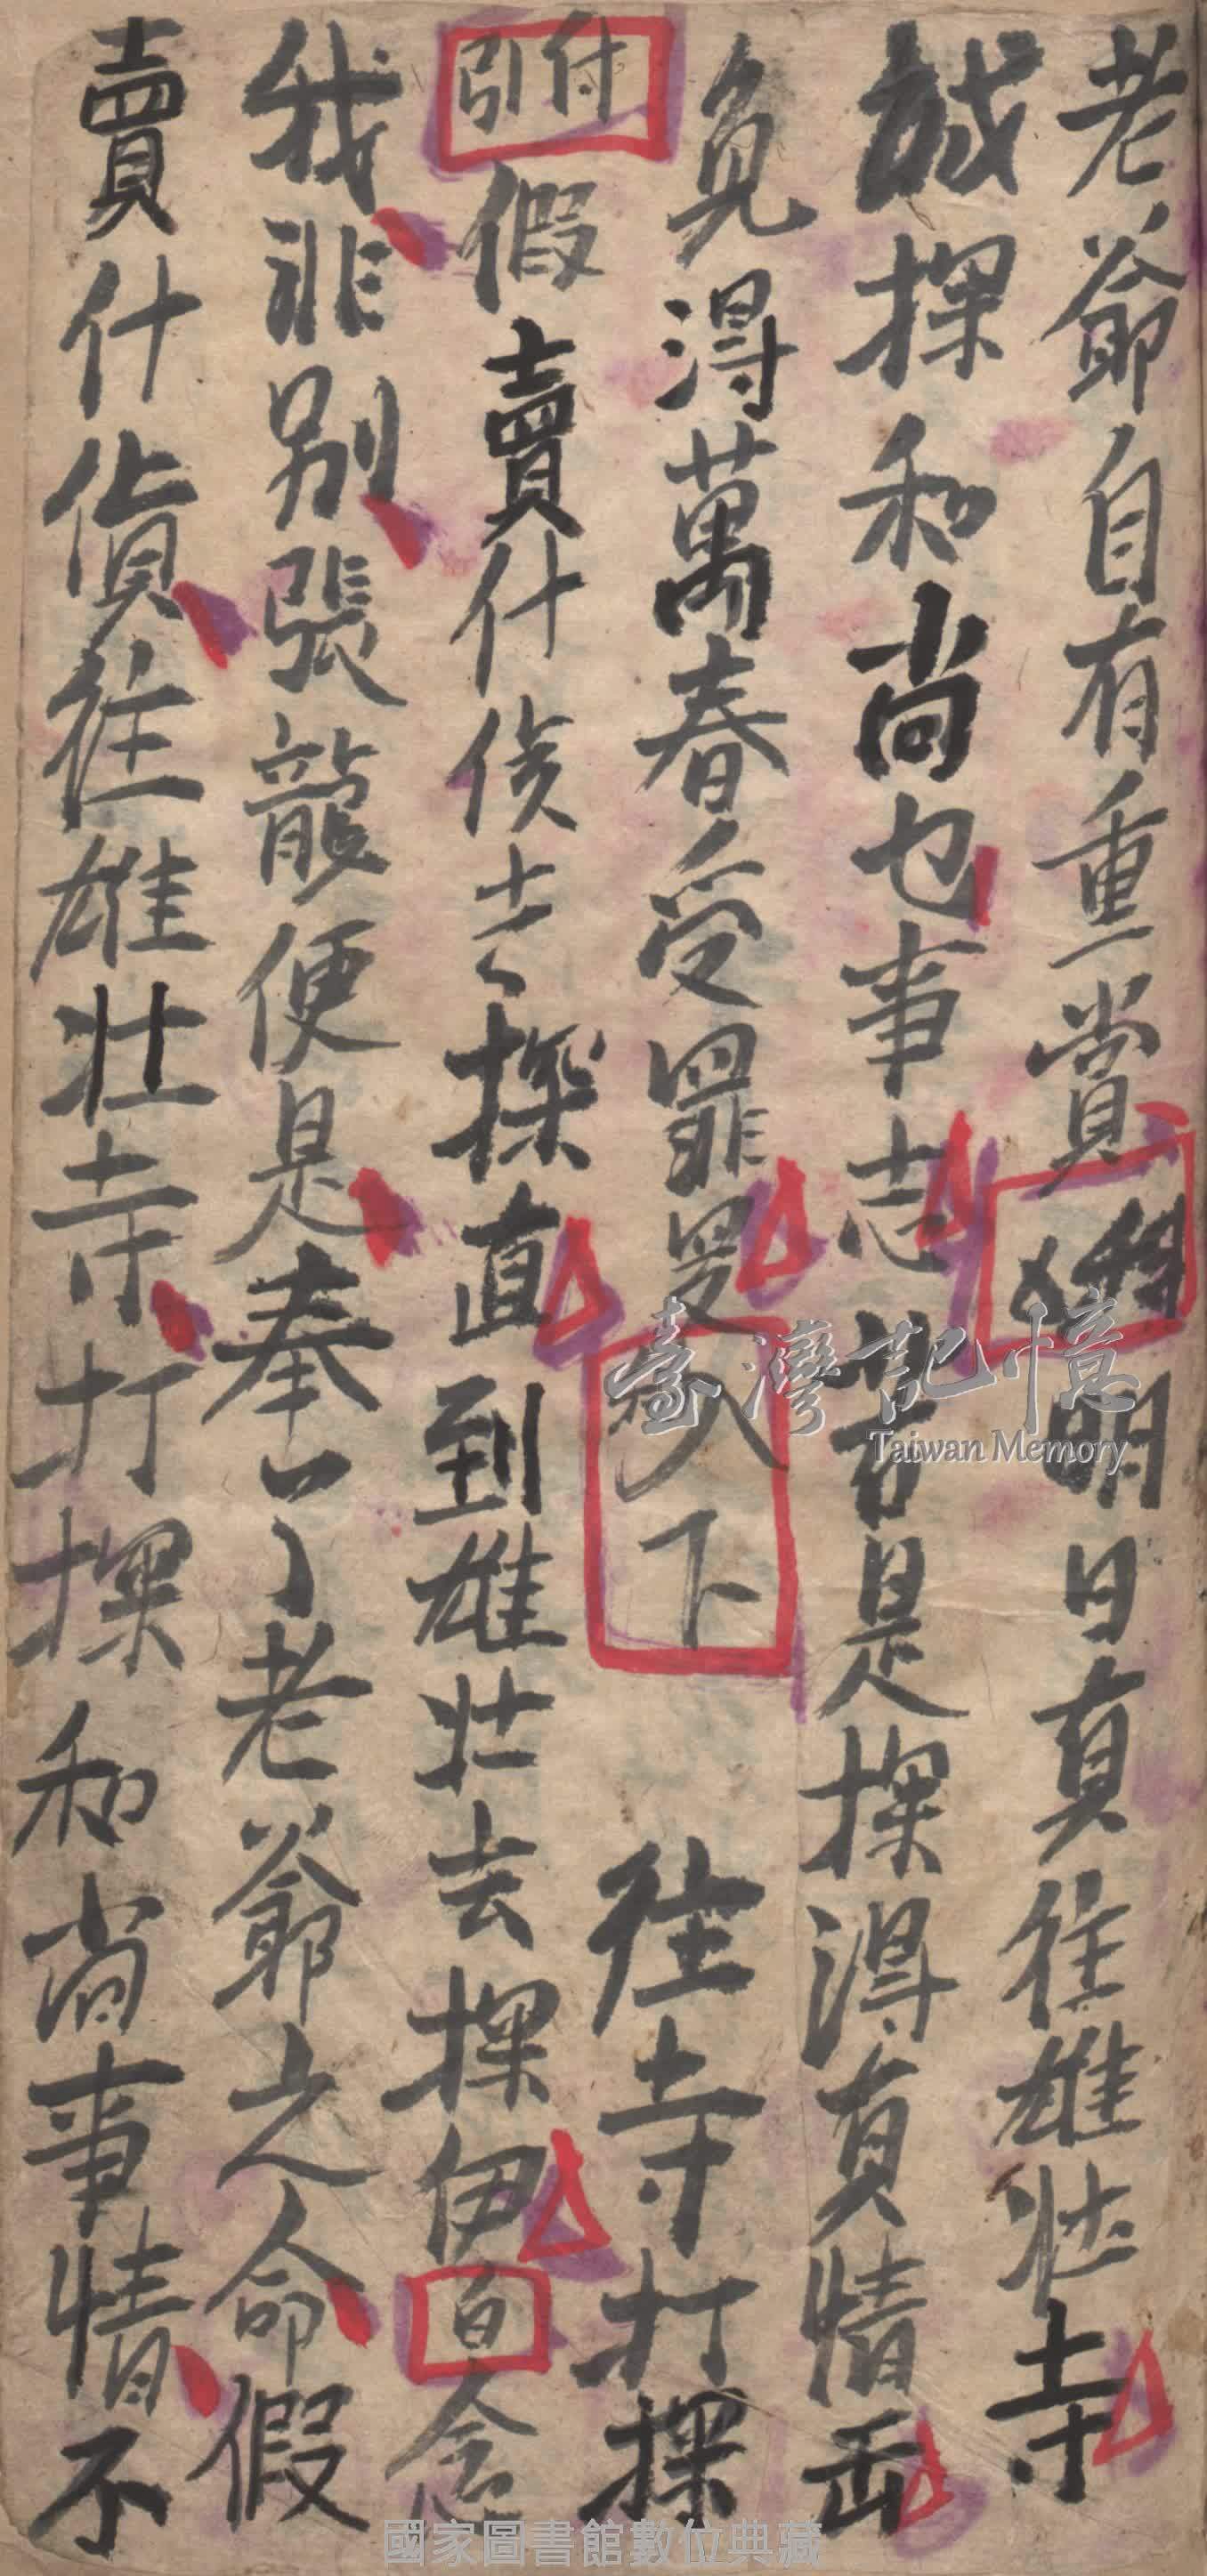 老爺自有重賞 明日真往雄壯寺
誠探和尚乜事志 若是探得真情
免得萬春受罪 入下 往寺打探
付引 假賣什 去探直到雄壯去探伊 白 念
我非別張龍便是奉了老爺之命假
賣什貨往雄壯寺打探和尚事情不
臺灣記憶
Taiwan Memory
國家圖書館數位典藏